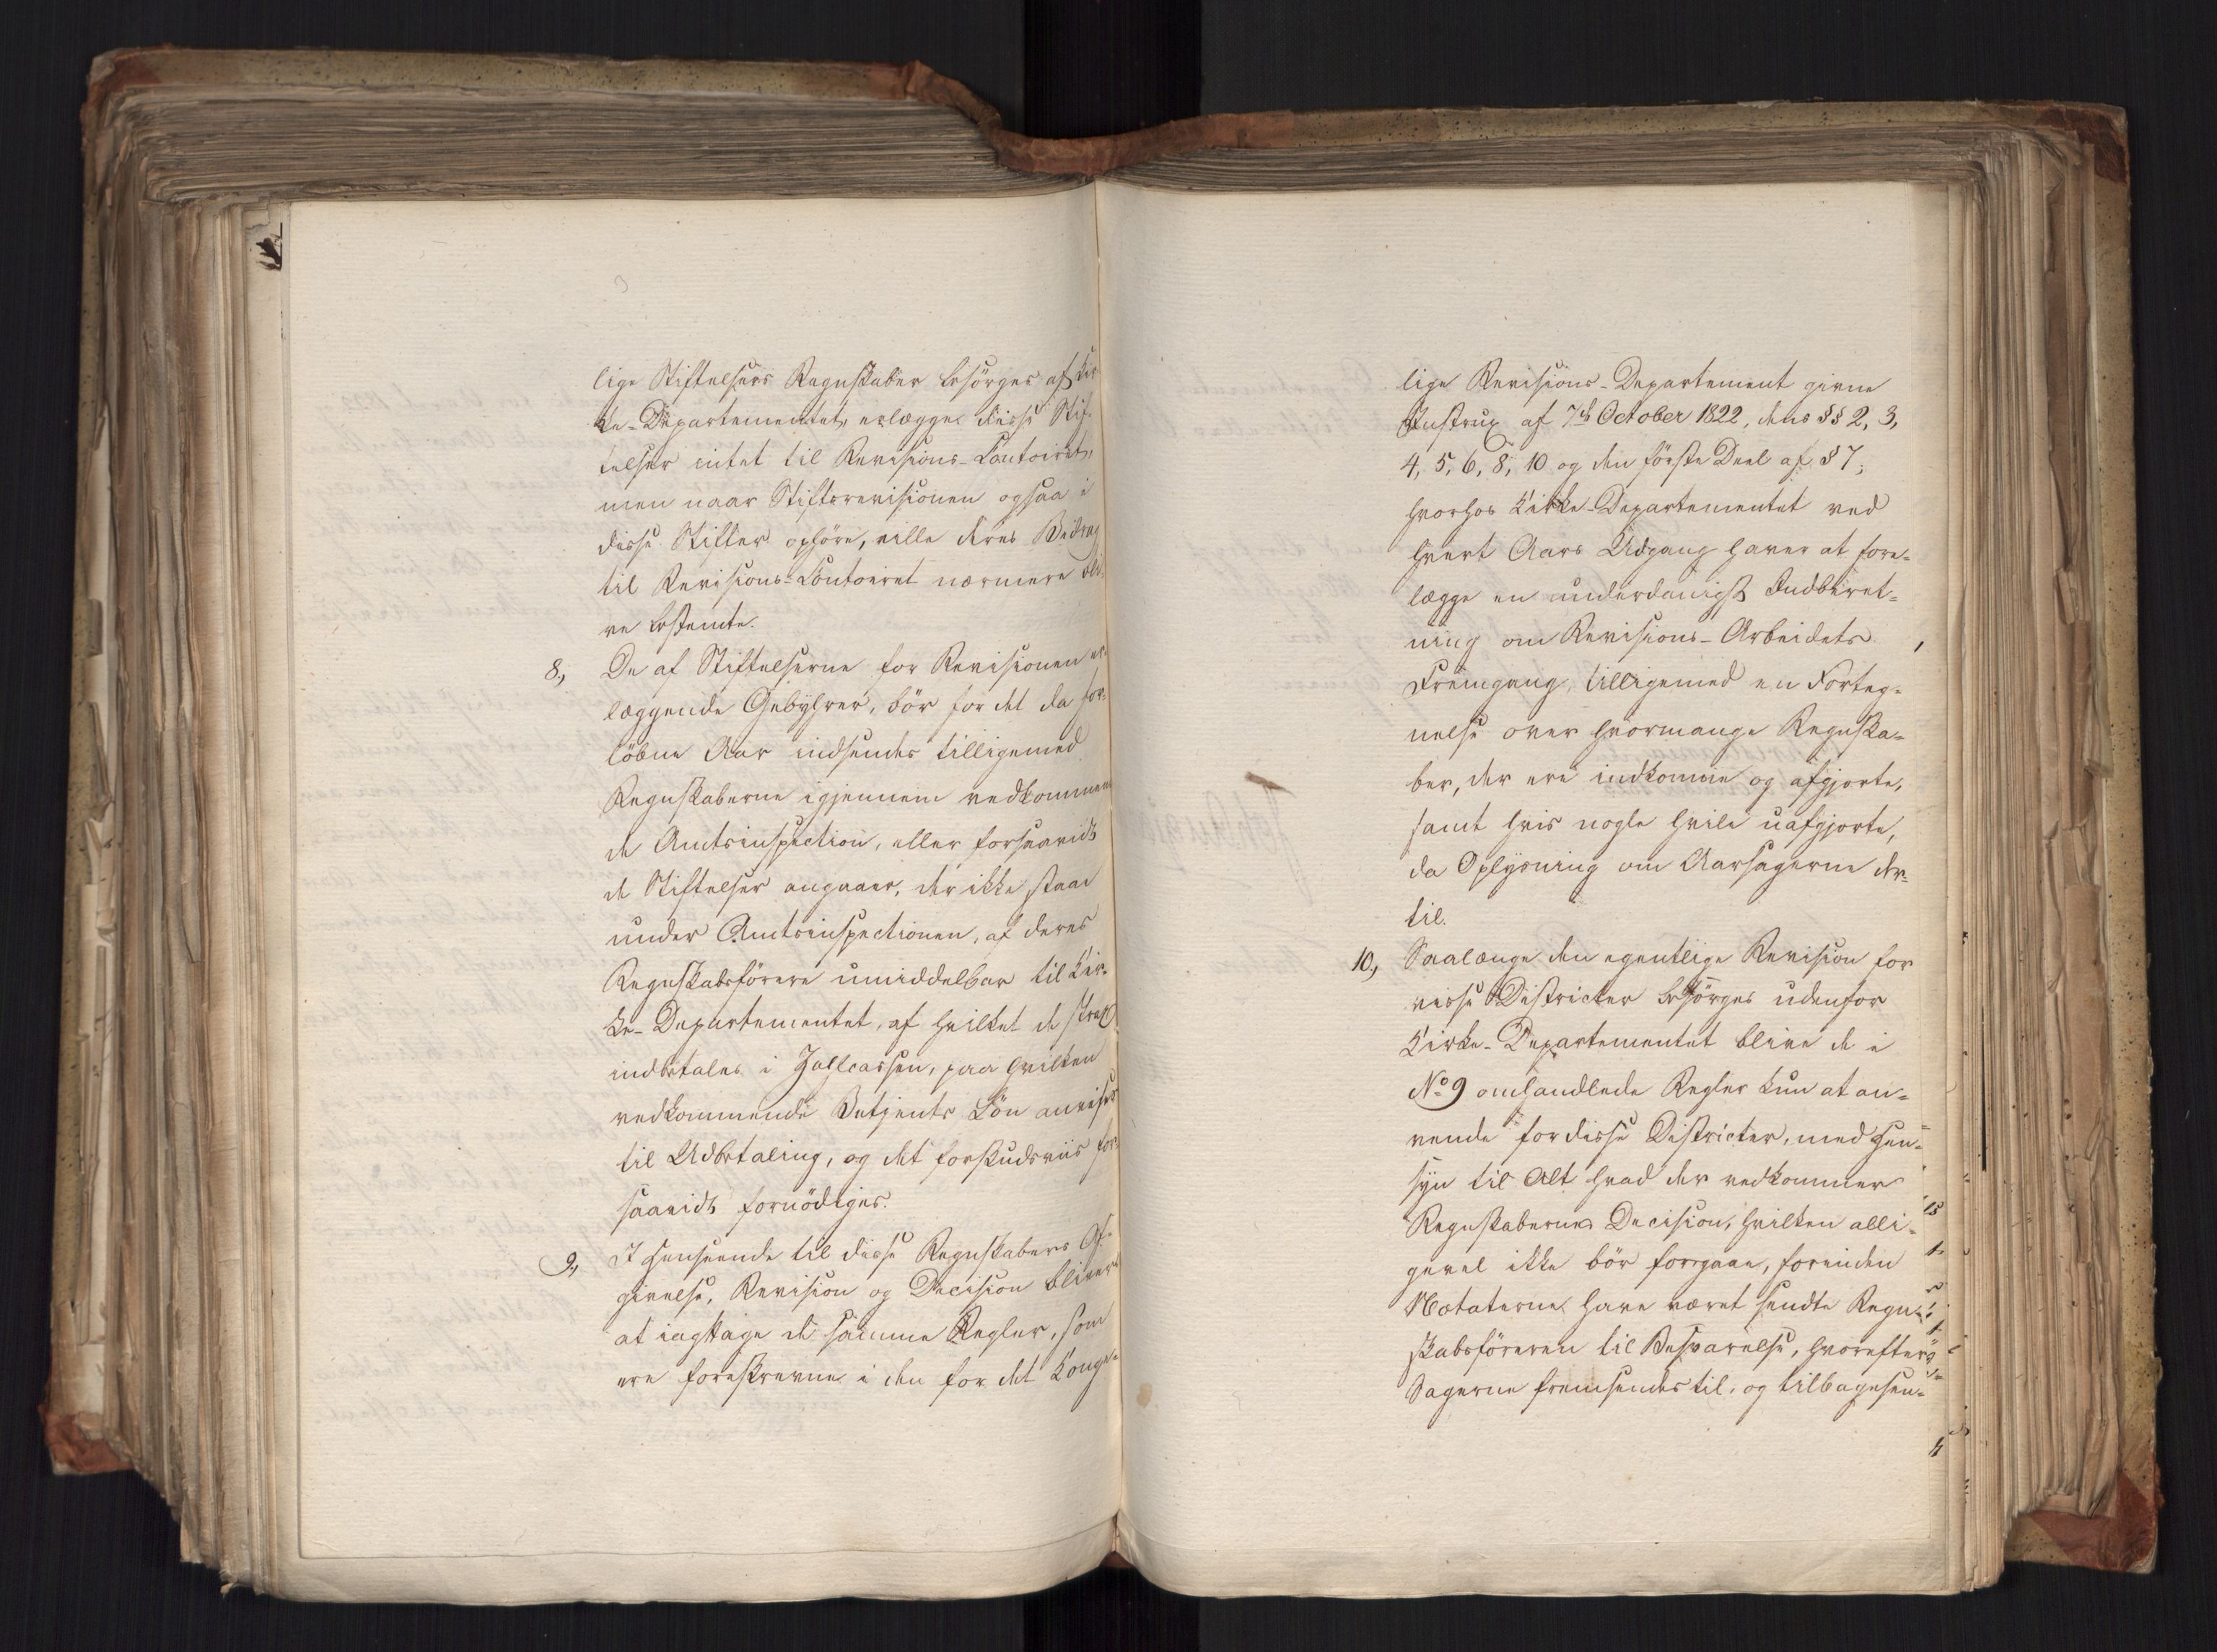 lige Stiftelsers Regnskaber besörges af Kir
ke-Departementet, erlægges disse Stif-
telser intet til Revisions-Contoiret,
men naar Stiftsrevisionen ogsaa i
disse Stifter ophöre, ville deres Bidrag
til Revisions-Contoiret nærmere bli
ve bestemte.
8, De af Stiftelserne for Revisionen er-
læggende Gebyhrer, bör for det da for-
löbne Aar indsendes tilligemed
Regnskaberne igjennem vedkommen
de Amtsinspection, eller forsaavidt
de Stiftelser angaaer, der ikke staae
under Amtsinspectionen, af deres
Regnskabsförere umiddelbar til Kir-
ke-Departementet, af hvilket de strax
indbetales i Zahlcassen, paa hvilken
vedkommende Betjents Lön anvises
til Udbetaling, og det forskudsviis for
saavidt fornödiges.
9, I Henseende til disse Regnskabers Af-
givelse, Revision og Decision bliver
at iagttage de samme Regler, som
ere foreskrevne i den for det Konge-
lige Revisions-Departement givne
Instrux af 7de October 1822, dens §§ 2, 3,
4, 5, 6, 8, 10 og den förste Deel af § 7;
hvorhos Kirke-Departementet ved
hvert Aars Udgang haver at fore-
lægge en underdanigst Indberet-
ning om Revisions-Arbeidets
Fremgang, tilligemed en Forteg-
nelse over hvormange Regnska-
ber, der ere indkomne og afgjorte,
samt hvis nogle hvile uafgjorte,
da Oplysning om Aarsagerne der-
til.
10, Saalænge den egentlige Revision for
visse Districter besörges udenfor
Kirke-Departementet blive de i
No 9 omhandlede Regler kun at an-
vende for disse Districter, med Hen-
syn til Alt hvad der vedkommer
Regnskabernes Decision, hvilken alli-
gevel ikke bör foregaae, forinden
Notaterne have været sendte Regn-
skabsföreren til Besvarelse, hvorefter
Sagerne fremsendes til, og tilbagesen-